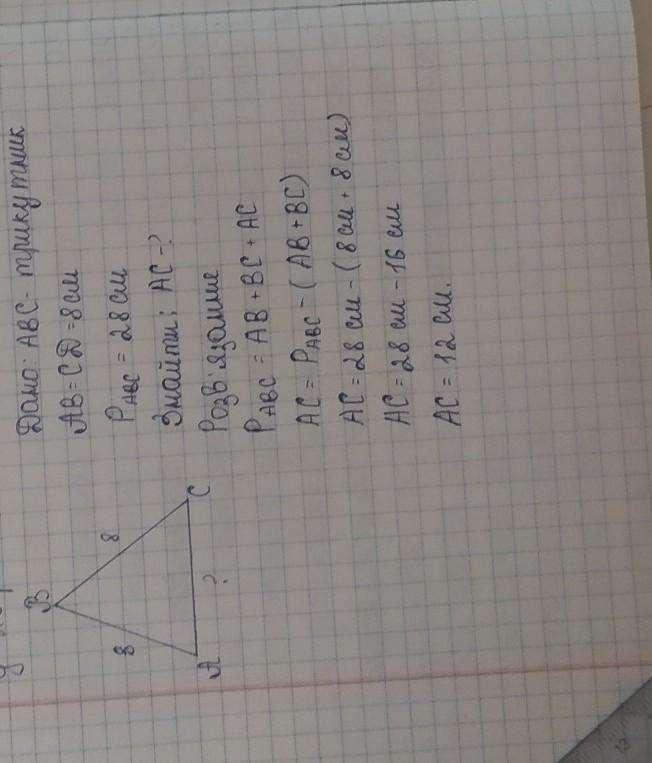 Дано: ABC - трикутник
AB = CД = 8 см
P ABC = 28 см
Знайти: AC - ?
Розв'язання
P ABC = AB + BC + AC
AC = P ABC - (AB + BC)
AC = 28 см - (8 см + 8 см)
AC = 28 см - 16 см
AC = 12 см.
B
8
8
A
?
C
13